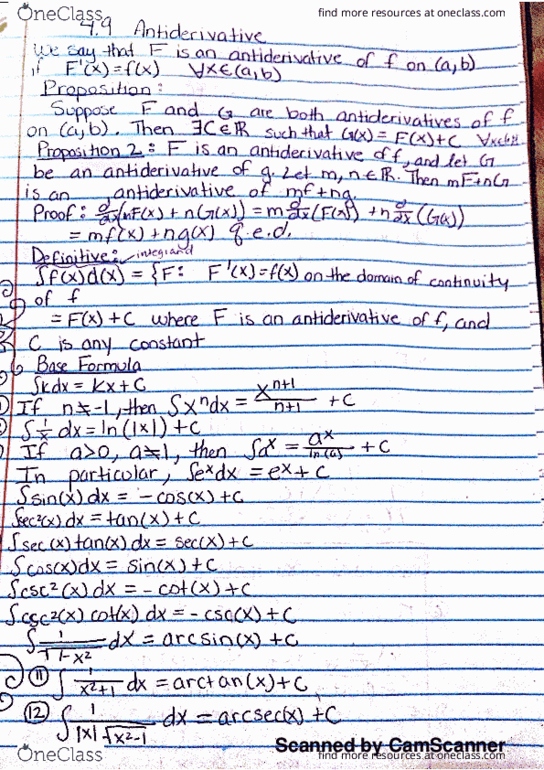 OneClass
find more resources at oneclass.com
4.9 Antiderivative
We say that F is an antiderivative of f on (a,b)
if F'(x)=f(x) ∀x∈(a,b)
Proposition:
Suppose F and G are both antiderivatives of f
on (a,b). Then ∃C∈ℝ such that G(x) = F(x)+C
Proposition 2: F is an antiderivative of f, and let G
be an antiderivative of g. Let m, n∈ℝ. Then mF+nG
is an antiderivative of mf+ng.
Proof: d/dx(mF(x) + nG(x)) = m d/dx (F(x)) + n d/dx (G(x))
= mf(x) + ng(x) q.e.d.
Definitive: integrand
∫f(x)d(x) = {F: F'(x)=f(x) on the domain of continuity
of f
= F(x) + C where F is an antiderivative of f, and
C is any constant
Base Formula
∫kdx = kx+C
If n≠-1, then ∫x^n dx = x^(n+1)/(n+1) + C
∫1/x dx = ln(|x|) + C
If a>0, a≠1, then ∫a^x = a^x/ln(a) + C
In particular, ∫e^x dx = e^x + C
∫sin(x) dx = -cos(x) + C
∫sec²(x) dx = tan(x) + C
∫sec(x)tan(x) dx = sec(x) + C
∫cos(x)dx = sin(x) + C
∫csc²(x) dx = -cot(x) + C
∫csc²(x) cot(x) dx = -csc(x) + C
∫ 1/√(1-x²) dx = arcsin(x) + C
⑪ ∫ 1/(x²+1) dx = arctan(x) + C
⑫ ∫ 1/(|x|√(x²-1)) dx = arcsec(x) + C
Scanned by CamScanner
OneClass
find more resources at oneclass.com